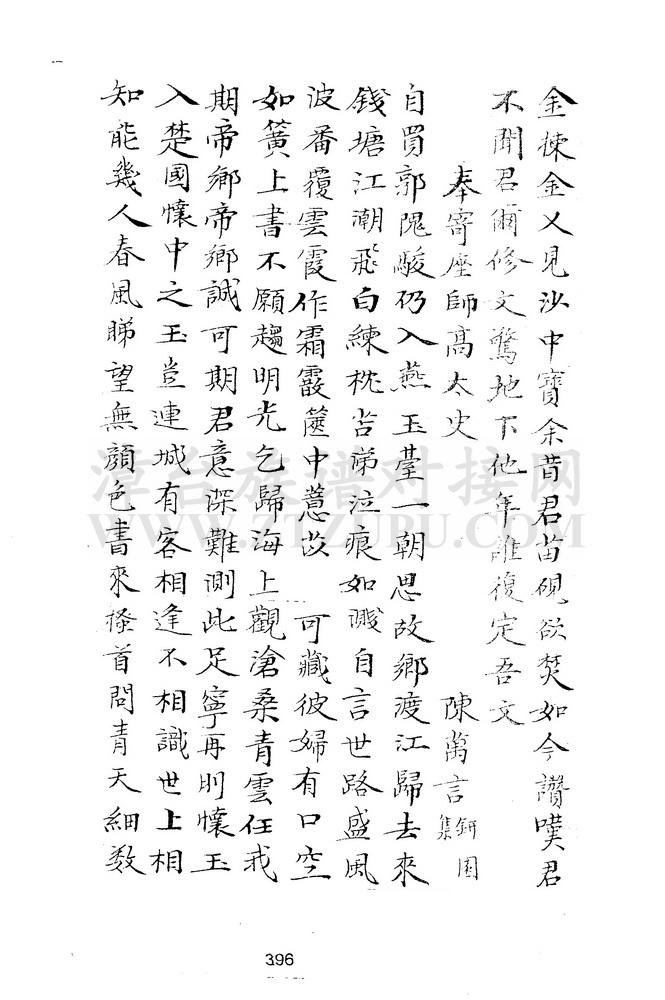 金揀金又見沙中寶余昔君苗硯欲焚如今讚嘆君
不聞君爾修文驚地下他年誰復定吾文
奉寄座師高太史 陳萬言 研園集
自買郭隗駿仍入燕玉臺一朝思故鄉渡江歸去來
錢塘江潮飛白練枕苫啼泣痕如濺自言世路盛風
波番覆雲霞作霜霰篋中薏苡 可藏彼婦有口空
如簧上書不願趨明光乞歸海上觀滄桑青雲任我
期帝鄉帝鄉誠可期君意深難測此足寧再刖懷玉
入楚國懷中之玉豈連城有客相逢不相識世上相
知能幾人春風睇望無顏色書來搔首問青天細数
漳台族谱对接网
WWW.ZTZUPU.COM
396